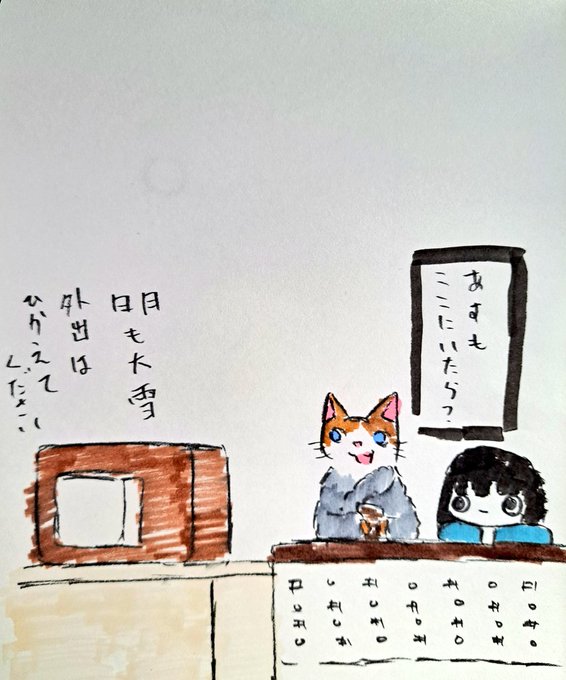 あすも
ここにいたら?
明日も大雪
外出は
ひかえて
ください